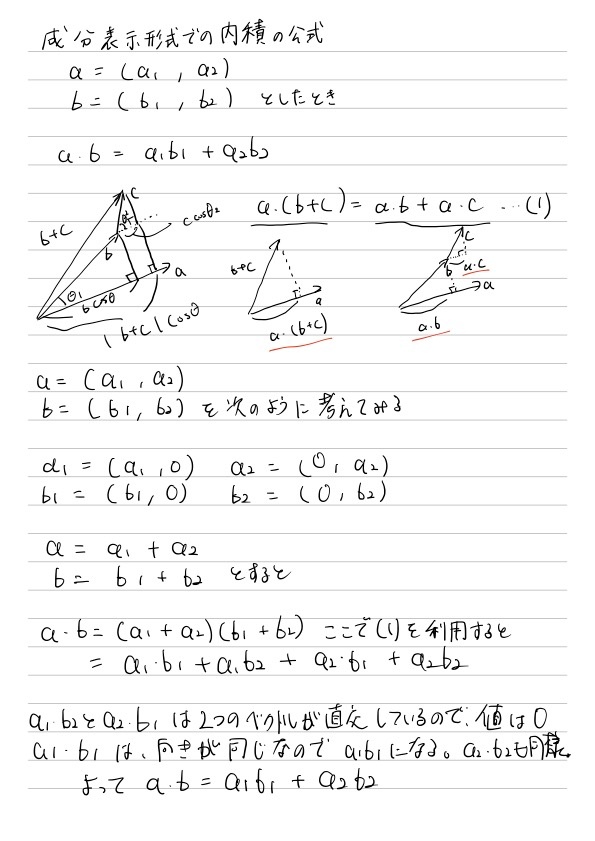 成分表示形式での内積の公式
a = (a1 , a2)
b = ( b1 , b2) としたとき
a・b = a1b1 + a2b2
a・(b+c) = a・b + a・c …(1)
c
c cosθ2
b+c
b
a
θ1
b cosθ
| b+c | cosθ
b+c
a
a・(b+c)
c
b
a・c
a
a・b
a = (a1 , a2)
b = (b1, b2) を次のように考えてみる
a1 = (a1 , 0) a2 = (0, a2)
b1 = (b1, 0) b2 = (0, b2)
a = a1 + a2
b = b1 + b2 とすると
a・b = (a1 + a2)(b1 + b2) ここで(1)を利用すると
= a1・b1 + a1b2 + a2・b1 + a2b2
a1・b2とa2・b1 は2つのベクトルが直交しているので、値は0
a1・b1 は、向きが同じなので a1b1になる。a2・b2も同様。
よって a・b = a1b1 + a2b2